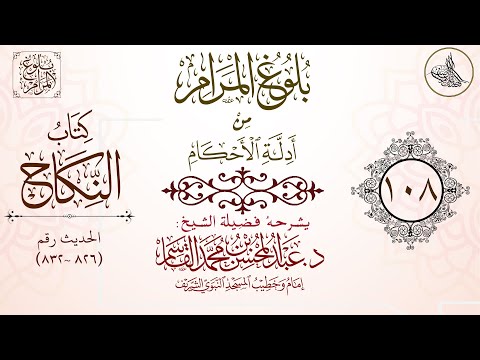 بلوغ المرام
بُلُوغُ المَرَامِ
مِنْ
أَدِلَّةِ ٱلْأَحْكَامِ
كِتَابُ
النِّكَاحِ
الحديث رقم
(٨٢٦ ~ ٨٣٢)
١٠٨
يشرحه فضيلة الشيخ:
د. عَبْدُ المُحْسِنِ بْنُ مُحَمَّدٍ القَاسِمِ
إِمَامُ وَخَطِيبُ المَسْجِدِ النَّبَوِيِّ الشَّرِيفِ